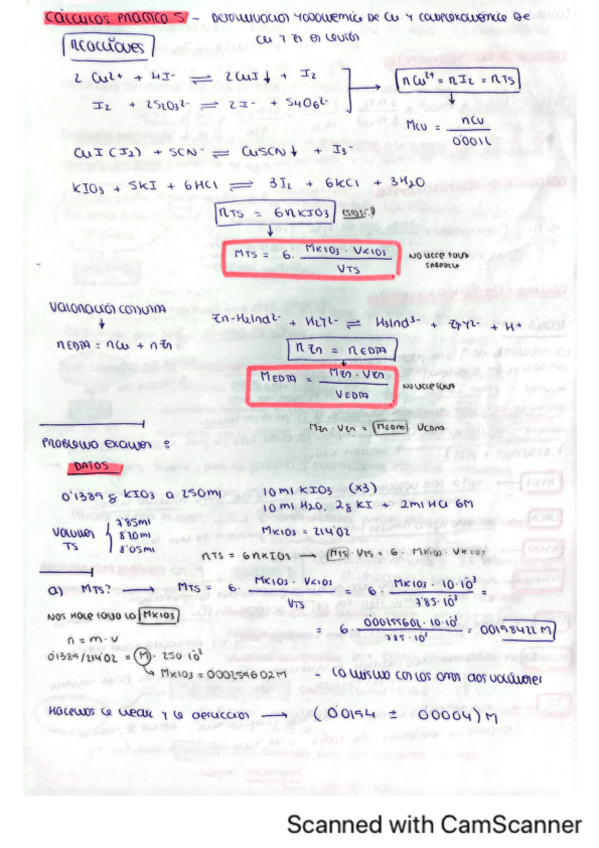 CÁLCULOS PRÁCTICO 5 - DETERMINACIÓN YODOMÉTRICA DE Cu Y COMPLEXOMÉTRICA DE
Cu Y Zn EN LATÓN
REACCIONES
2 Cu2+ + 4I- ⇌ 2CuI↓ + I2
I2 + 2S2O32- ⇌ 2I- + S4O62-
nCu2+ = nI2 = nTS
MCu = nCu / 0'001L
CuI (I2) + SCN- ⇌ CuSCN↓ + I3-
KIO3 + 5KI + 6HCl ⇌ 3I2 + 6KCl + 3H2O
nTS = 6nKIO3
MTS = 6 · MKIO3 · VKIO3 / VTS
NO HACE FALTA
SABERLO
VALORACIÓN CONJUNTA
nEDTA = nCu + nZn
Zn-H2Ind2- + H2Y2- ⇌ H3Ind3- + ZnY2- + H+
nZn = nEDTA
MEDTA = MZn · VZn / VEDTA
NO HACE FALTA
MZn · VZn = MEDTA VEDTA
PROBLEMA EXAMEN :
DATOS
0'1389 g KIO3 a 250ml
10ml KIO3 (x3)
10ml H2O, 2g KI + 2ml HCl 6M
MKIO3 = 214'02
VOLUMEN TS
7'85ml
8'20ml
8'05ml
nTS = 6nKIO3 → MTS · VTS = 6 · MKIO3 · VKIO3
a) MTS? → MTS = 6 · MKIO3 · VKIO3 / VTS = 6 · MKIO3 · 10·10-3 / 7'85·10-3 =
NOS HACE FALTA LA MKIO3
= 6 · 0'00259602 · 10·10-3 / 7'85·10-3 = 0'0198422 M
n = m · v
0'1389/214'02 = M · 250·10-3
→ MKIO3 = 0'00259602 M
- LO MISMO CON LOS OTROS DOS VOLÚMENES
HACEMOS LA MEDIA Y LA DESVIACIÓN → (0'0194 ± 0'0004) M
Scanned with CamScanner